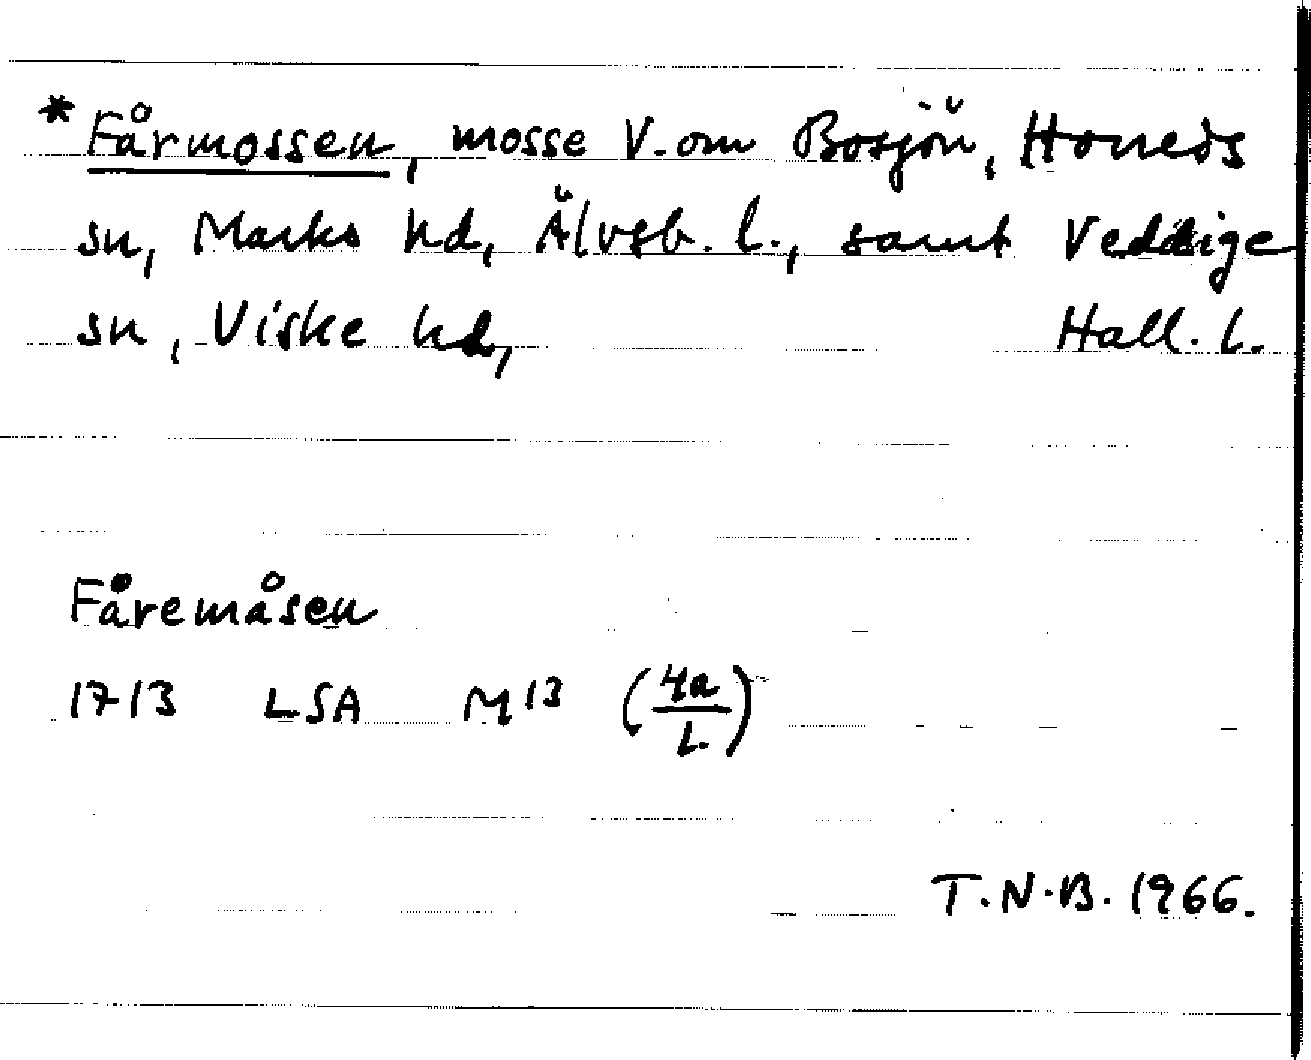 *Fårmossen, mosse V. om Bosjön, Horreds
sn, Marks hd, Älvsb. l., samt Veddige
sn, Viske hd, Hall. l.
Fåremåsen
1713 LSA M13 (4a/L.)
T.N.B. 1966.